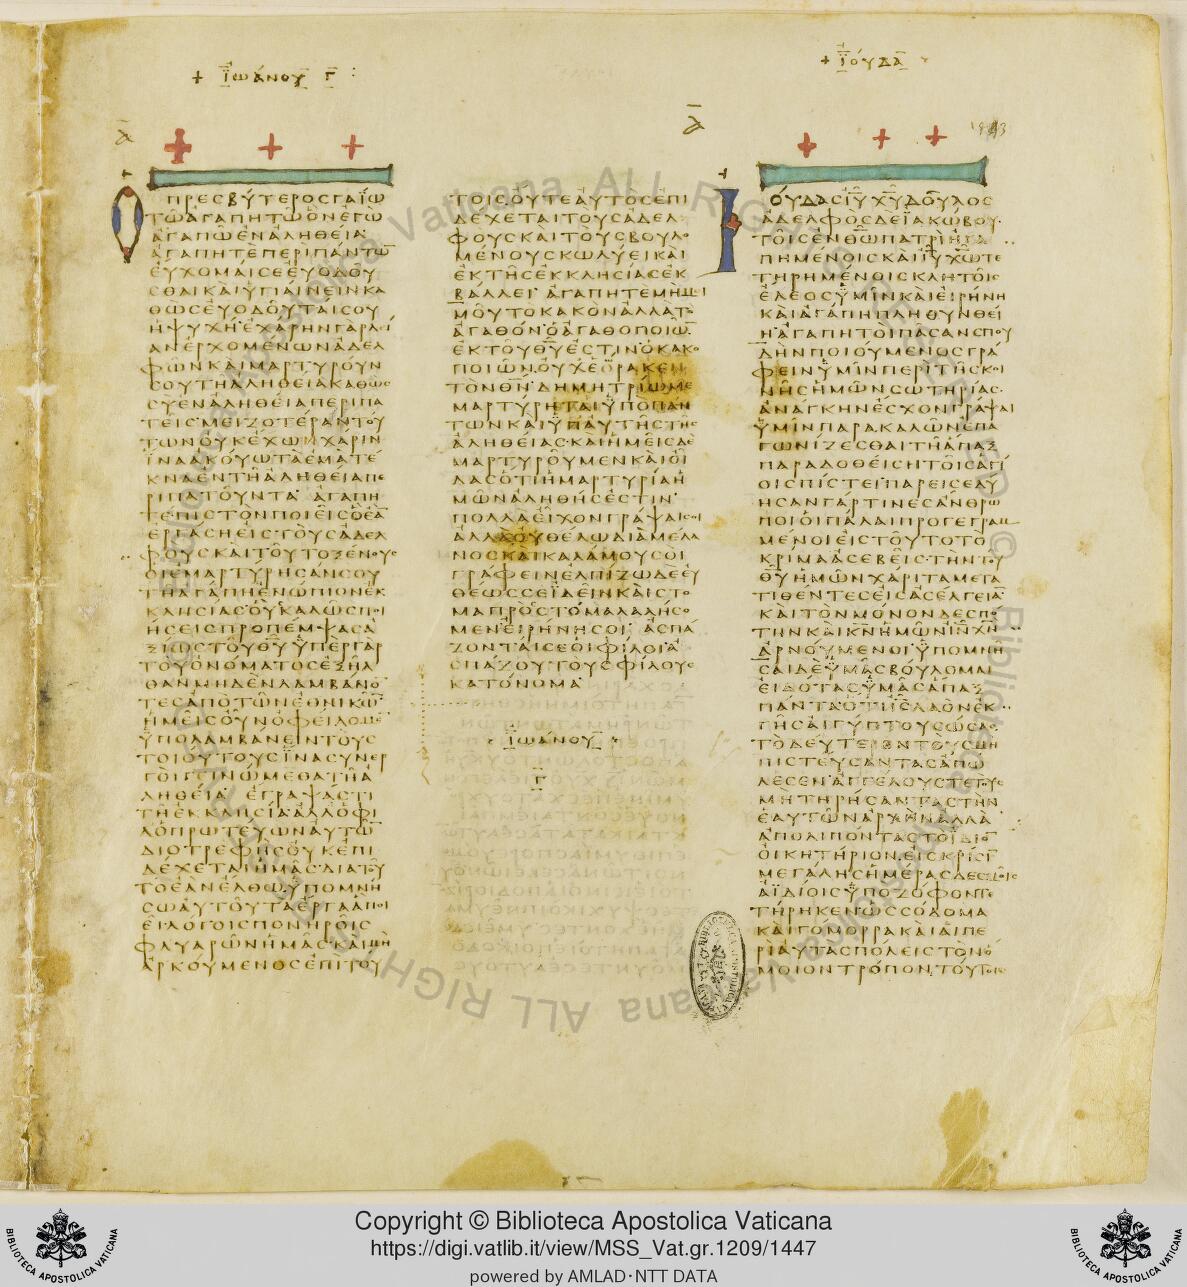 + ΙΩΑΝΟΥ Γ
+ ΙΟΥΔΑ
Ο ΠΡΕΣΒΥΤΕΡΟΣ ΓΑΙΩ
ΤΩ ΑΓΑΠΗΤΩ ΟΝ ΕΓΩ
ΑΓΑΠΩ ΕΝ ΑΛΗΘΕΙΑ
ΑΓΑΠΗΤΕ ΠΕΡΙ ΠΑΝΤΩ
ΕΥΧΟΜΑΙ ΣΕ ΕΥΟΔΟΥ
ΣΘΑΙ ΚΑΙ ΥΓΙΑΙΝΕΙΝ ΚΑ
ΘΩΣ ΕΥΟΔΟΥΤΑΙ ΣΟΥ
Η ΨΥΧΗ ΕΧΑΡΗΝ ΓΑΡ ΛΕΙ
ΑΝ ΕΡΧΟΜΕΝΩΝ ΑΔΕΛ
ΦΩΝ ΚΑΙ ΜΑΡΤΥΡΟΥΝ
ΣΟΥ ΤΗ ΑΛΗΘΕΙΑ ΚΑΘΩΣ
ΣΥ ΕΝ ΑΛΗΘΕΙΑ ΠΕΡΙΠΑ
ΤΕΙΣ ΜΕΙΖΟΤΕΡΑΝ ΤΟΥ
ΤΩΝ ΟΥΚ ΕΧΩ ΧΑΡΙΝ
ΙΝΑ ΑΚΟΥΩ ΤΑ ΕΜΑ ΤΕ
ΚΝΑ ΕΝ ΤΗ ΑΛΗΘΕΙΑ ΠΕ
ΡΙΠΑΤΟΥΝΤΑ ΑΓΑΠΗ
ΤΕ ΠΙΣΤΟΝ ΠΟΙΕΙΣ Ο ΕΑ
ΕΡΓΑΣΗ ΕΙΣ ΤΟΥΣ ΑΔΕΛ
ΦΟΥΣ ΚΑΙ ΤΟΥΤΟ ΞΕΝΟΥΣ
ΟΙ ΕΜΑΡΤΥΡΗΣΑΝ ΣΟΥ
ΤΗ ΑΓΑΠΗ ΕΝΩΠΙΟΝ ΕΚ
ΚΛΗΣΙΑΣ ΟΥΣ ΚΑΛΩΣ ΠΟΙ
ΗΣΕΙΣ ΠΡΟΠΕΜΨΑΣ Α
ΞΙΩΣ ΤΟΥ ΘΥ ΥΠΕΡ ΓΑΡ
ΤΟΥ ΟΝΟΜΑΤΟΣ ΕΞΗΛ
ΘΑΝ ΜΗΔΕΝ ΛΑΜΒΑΝΟ
ΤΕΣ ΑΠΟ ΤΩΝ ΕΘΝΙΚΩ
ΗΜΕΙΣ ΟΥΝ ΟΦΕΙΛΟΜΕ
ΥΠΟΛΑΜΒΑΝΕΙΝ ΤΟΥΣ
ΤΟΙΟΥΤΟΥΣ ΙΝΑ ΣΥΝΕΡ
ΓΟΙ ΓΕΙΝΩΜΕΘΑ ΤΗ Α
ΛΗΘΕΙΑ ΕΓΡΑΨΑΣ ΤΙ
ΤΗ ΕΚΚΛΗΣΙΑ ΑΛΛ Ο ΦΙ
ΛΟΠΡΩΤΕΥΩΝ ΑΥΤΩ
ΔΙΟΤΡΕΦΗΣ ΟΥΚ ΕΠΙ
ΔΕΧΕΤΑΙ ΗΜΑΣ ΔΙΑ ΤΟΥ
ΤΟ ΕΑΝ ΕΛΘΩ ΥΠΟΜΝΗ
ΣΩ ΑΥΤΟΥ ΤΑ ΕΡΓΑ Α ΠΟΙ
ΕΙ ΛΟΓΟΙΣ ΠΟΝΗΡΟΙΣ
ΦΛΥΑΡΩΝ ΗΜΑΣ ΚΑΙ ΜΗ
ΑΡΚΟΥΜΕΝΟΣ ΕΠΙ ΤΟΥ
ΤΟΙΣ ΟΥΤΕ ΑΥΤΟΣ ΕΠΙ
ΔΕΧΕΤΑΙ ΤΟΥΣ ΑΔΕΛ
ΦΟΥΣ ΚΑΙ ΤΟΥΣ ΒΟΥΛΟ
ΜΕΝΟΥΣ ΚΩΛΥΕΙ ΚΑΙ
ΕΚ ΤΗΣ ΕΚΚΛΗΣΙΑΣ ΕΚ
ΒΑΛΛΕΙ ΑΓΑΠΗΤΕ ΜΗ ΜΙ
ΜΟΥ ΤΟ ΚΑΚΟΝ ΑΛΛΑ ΤΟ
ΑΓΑΘΟΝ Ο ΑΓΑΘΟΠΟΙΩ
ΕΚ ΤΟΥ ΘΥ ΕΣΤΙΝ Ο ΚΑΚΟ
ΠΟΙΩΝ ΟΥΧ ΕΟΡΑΚΕΝ
ΤΟΝ ΘΝ ΔΗΜΗΤΡΙΩ ΜΕ
ΜΑΡΤΥΡΗΤΑΙ ΥΠΟ ΠΑΝ
ΤΩΝ ΚΑΙ ΥΠ ΑΥΤΗΣ ΤΗΣ
ΑΛΗΘΕΙΑΣ ΚΑΙ ΗΜΕΙΣ ΔΕ
ΜΑΡΤΥΡΟΥΜΕΝ ΚΑΙ ΟΙ
ΔΑΣ ΟΤΙ Η ΜΑΡΤΥΡΙΑ Η
ΜΩΝ ΑΛΗΘΗΣ ΕΣΤΙΝ
ΠΟΛΛΑ ΕΙΧΟΝ ΓΡΑΨΑΙ ΣΟΙ
ΑΛΛ ΟΥ ΘΕΛΩ ΔΙΑ ΜΕΛΑ
ΝΟΣ ΚΑΙ ΚΑΛΑΜΟΥ ΣΟΙ
ΓΡΑΦΕΙΝ ΕΛΠΙΖΩ ΔΕ ΕΥ
ΘΕΩΣ ΣΕ ΙΔΕΙΝ ΚΑΙ ΣΤΟ
ΜΑ ΠΡΟΣ ΣΤΟΜΑ ΛΑΛΗΣΟ
ΜΕΝ ΕΙΡΗΝΗ ΣΟΙ ΑΣΠΑ
ΖΟΝΤΑΙ ΣΕ ΟΙ ΦΙΛΟΙ Α
ΣΠΑΖΟΥ ΤΟΥΣ ΦΙΛΟΥΣ
ΚΑΤ ΟΝΟΜΑ
ΙΩΑΝΟΥ
Γ
ΙΟΥΔΑΣ ΙΥ ΧΥ ΔΟΥΛΟΣ
ΑΔΕΛΦΟΣ ΔΕ ΙΑΚΩΒΟΥ
ΤΟΙΣ ΕΝ ΘΩ ΠΑΤΡΙ ΗΓΑ
ΠΗΜΕΝΟΙΣ ΚΑΙ ΙΥ ΧΩ ΤΕ
ΤΗΡΗΜΕΝΟΙΣ ΚΛΗΤΟΙΣ
ΕΛΕΟΣ ΥΜΙΝ ΚΑΙ ΕΙΡΗΝΗ
ΚΑΙ ΑΓΑΠΗ ΠΛΗΘΥΝΘΕΙ
Η ΑΓΑΠΗΤΟΙ ΠΑΣΑΝ ΣΠΟΥ
ΔΗΝ ΠΟΙΟΥΜΕΝΟΣ ΓΡΑ
ΦΕΙΝ ΥΜΙΝ ΠΕΡΙ ΤΗΣ ΚΟΙ
ΝΗΣ ΗΜΩΝ ΣΩΤΗΡΙΑΣ
ΑΝΑΓΚΗΝ ΕΣΧΟΝ ΓΡΑΨΑΙ
ΥΜΙΝ ΠΑΡΑΚΑΛΩΝ ΕΠΑ
ΓΩΝΙΖΕΣΘΑΙ ΤΗ ΑΠΑΞ
ΠΑΡΑΔΟΘΕΙΣΗ ΤΟΙΣ ΑΓΙ
ΟΙΣ ΠΙΣΤΕΙ ΠΑΡΕΙΣΕΔΥ
ΗΣΑΝ ΓΑΡ ΤΙΝΕΣ ΑΝΘΡΩ
ΠΟΙ ΟΙ ΠΑΛΑΙ ΠΡΟΓΕΓΡΑΜ
ΜΕΝΟΙ ΕΙΣ ΤΟΥΤΟ ΤΟ
ΚΡΙΜΑ ΑΣΕΒΕΙΣ ΤΗΝ ΤΟΥ
ΘΥ ΗΜΩΝ ΧΑΡΙΤΑ ΜΕΤΑ
ΤΙΘΕΝΤΕΣ ΕΙΣ ΑΣΕΛΓΕΙΑ
ΚΑΙ ΤΟΝ ΜΟΝΟΝ ΔΕΣΠΟ
ΤΗΝ ΚΑΙ ΚΝ ΗΜΩΝ ΙΝ ΧΝ
ΑΡΝΟΥΜΕΝΟΙ ΥΠΟΜΝΗ
ΣΑΙ ΔΕ ΥΜΑΣ ΒΟΥΛΟΜΑΙ
ΕΙΔΟΤΑΣ ΥΜΑΣ ΑΠΑΞ
ΠΑΝΤΑ ΟΤΙ ΙΣ ΛΑΟΝ ΕΚ
ΓΗΣ ΑΙΓΥΠΤΟΥ ΣΩΣΑΣ
ΤΟ ΔΕΥΤΕΡΟΝ ΤΟΥΣ ΜΗ
ΠΙΣΤΕΥΣΑΝΤΑΣ ΑΠΩ
ΛΕΣΕΝ ΑΓΓΕΛΟΥΣ ΤΕ ΤΟΥΣ
ΜΗ ΤΗΡΗΣΑΝΤΑΣ ΤΗΝ
ΕΑΥΤΩΝ ΑΡΧΗΝ ΑΛΛΑ
ΑΠΟΛΙΠΟΝΤΑΣ ΤΟ ΙΔΙΟ
ΟΙΚΗΤΗΡΙΟΝ ΕΙΣ ΚΡΙΣΙ
ΜΕΓΑΛΗΣ ΗΜΕΡΑΣ ΔΕΣΜΟΙΣ
ΑΙΔΙΟΙΣ ΥΠΟ ΖΟΦΟΝ ΤΕ
ΤΗΡΗΚΕΝ ΩΣ ΣΟΔΟΜΑ
ΚΑΙ ΓΟΜΟΡΡΑ ΚΑΙ ΑΙ ΠΕ
ΡΙ ΑΥΤΑΣ ΠΟΛΕΙΣ ΤΟΝ Ο
ΜΟΙΟΝ ΤΡΟΠΟΝ ΤΟΥΤΟΙΣ
Copyright © Biblioteca Apostolica Vaticana
https://digi.vatlib.it/view/MSS_Vat.gr.1209/1447
powered by AMLAD·NTT DATA
BIBLIOTECA APOSTOLICA VATICANA
BIBLIOTECA APOSTOLICA VATICANA